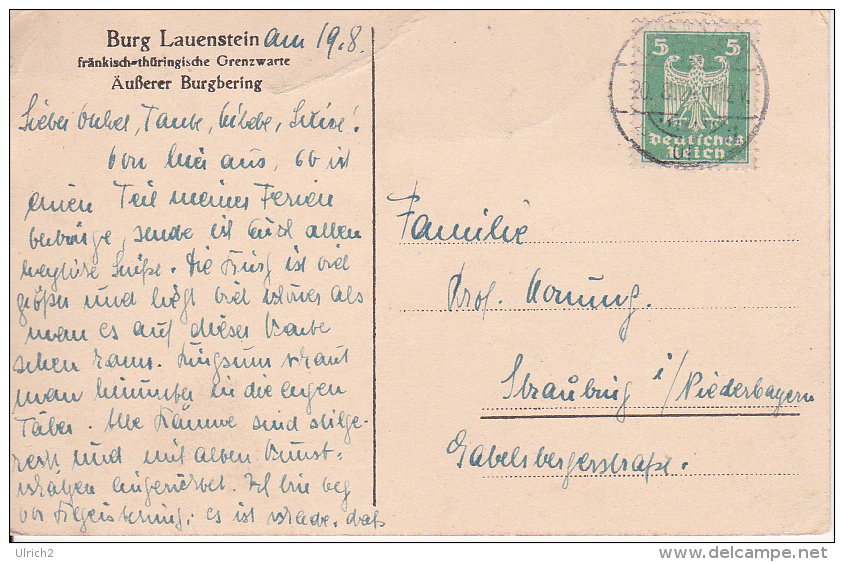 Burg Lauenstein am 19.8.
fränkisch-thüringische Grenzwarte
Äußerer Burgbering
Lieber Onkel, Tante,
Von hier aus, wo ich
einen Teil meiner Ferien
verbringe, sende ich Euch allen
herzliche Grüße. Die Burg ist viel
größer und liegt viel schöner als
man es auf dieser Karte
sehen kann. Ringsum schaut
man hinunter in die engen
Täler. Alle Räume sind stilge-
recht und mit alten Kunst-
schätzen eingerichtet. Ich bin weg
vor Begeisterung; es ist schade, daß
5 5
Deutsches
Reich
Familie
Prof. Hornung.
Straubing i/Niederbayern
Gabelsbergerstraße.
Ulrich2
www.delcampe.net